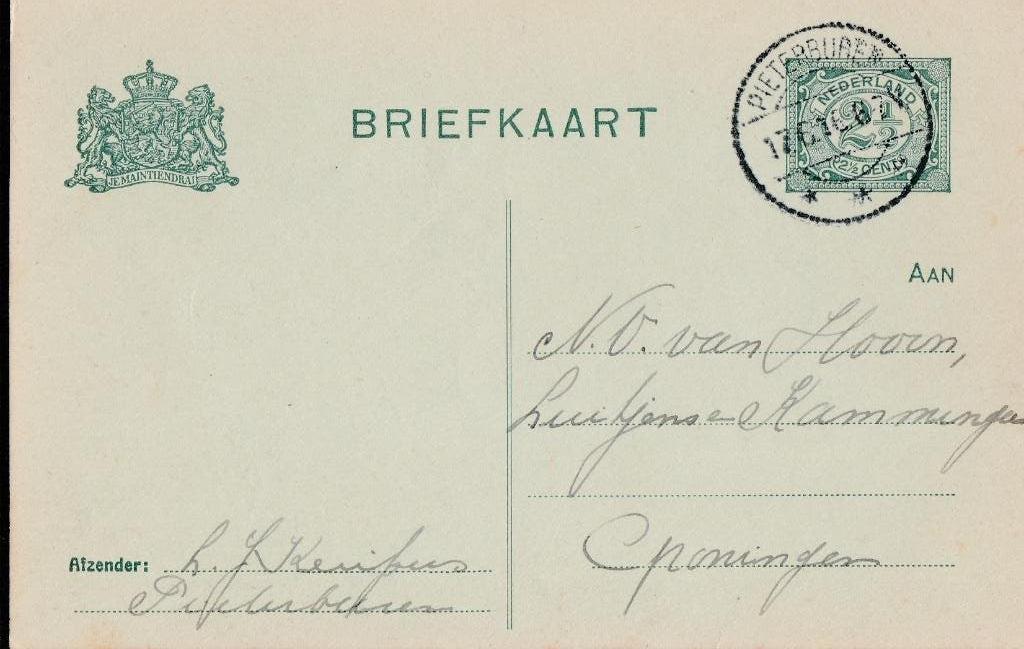 JE MAINTIENDRAI
BRIEFKAART
PIETERBUREN
NEDERLAND
2½
2½ CENT
AAN
N.V. van Hoorn,
Luitjens & Kamminga
Groningen
Afzender: L. J.
Pieterburen